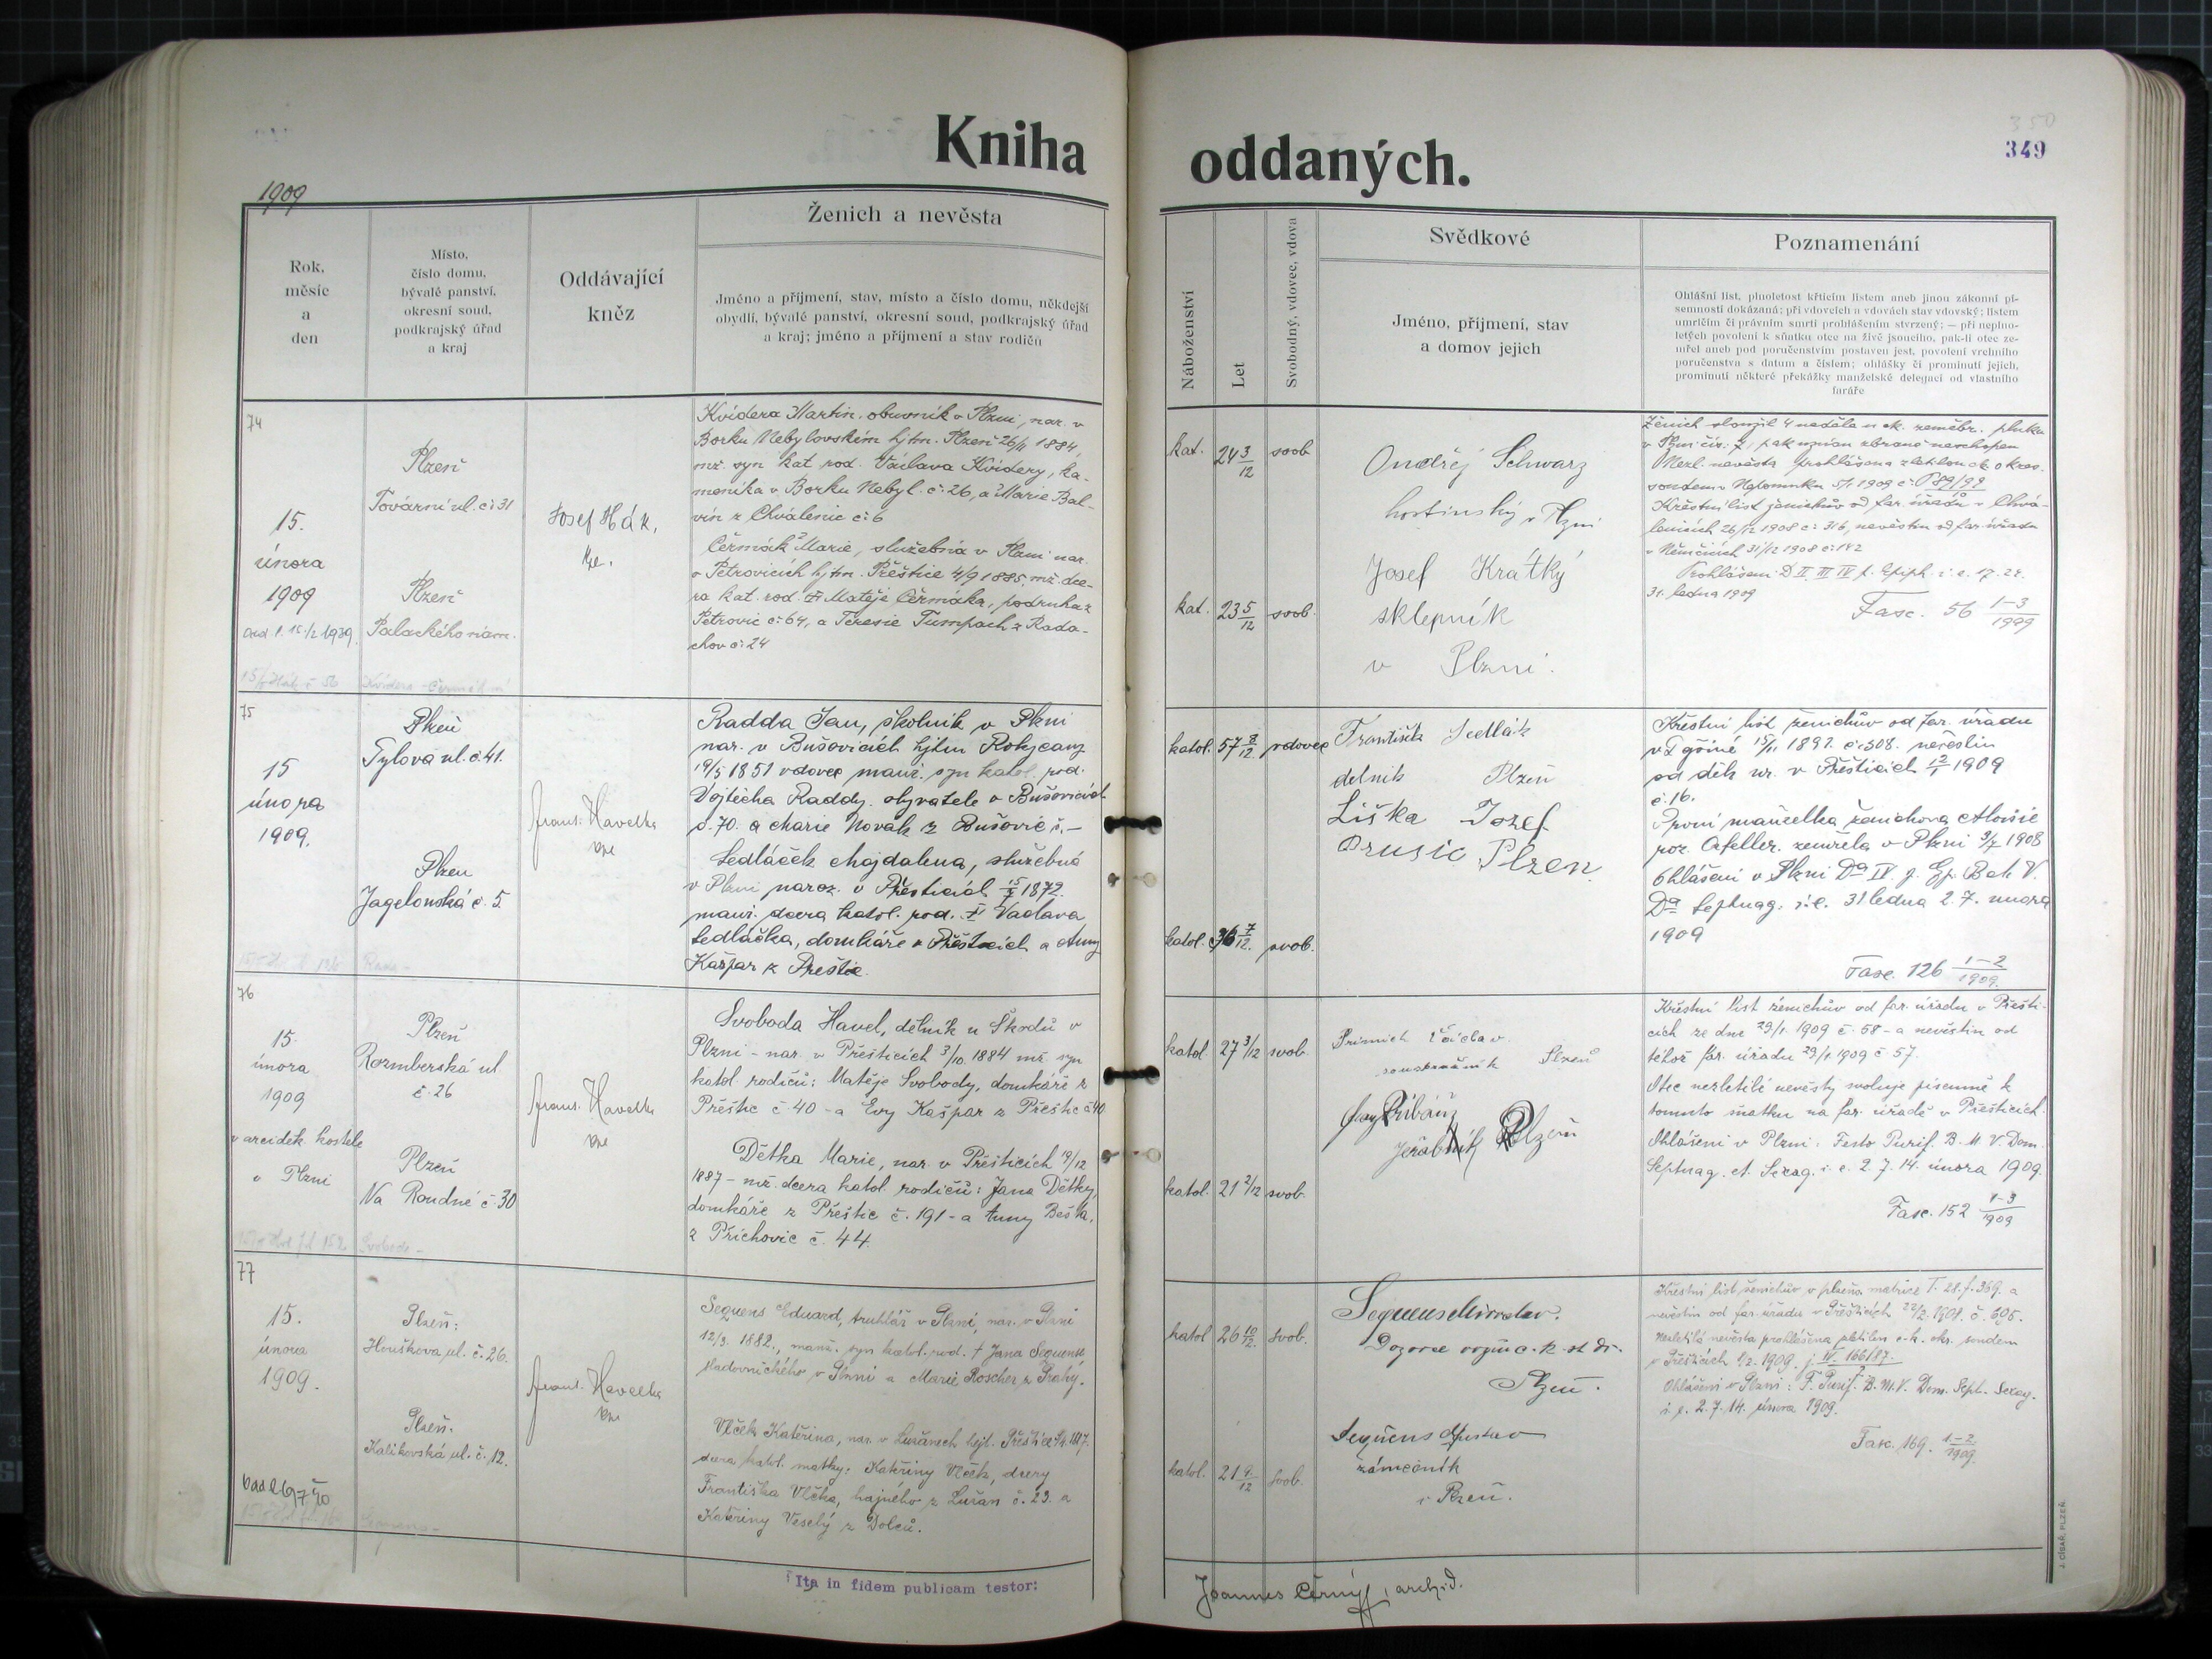 Kniha
oddaných.
350
349
1909
Rok,
měsíc
a
den
Místo,
číslo domu,
bývalé panství,
okresní soud,
podkrajský úřad
a kraj
Oddávající
kněz
Ženich a nevěsta
Jméno a příjmení, stav, místo a číslo domu, někdejší
obydlí, bývalé panství, okresní soud, podkrajský úřad
a kraj; jméno a příjmení a stav rodičů
Náboženství
Let
Svobodný, vdovec, vdova
Svědkové
Jméno, příjmení, stav
a domov jejich
Poznamenání
Ohlášní list, plnoletost křticím listem aneb jinou zákonní pí-
semností dokázaná; při vdovcích a vdovách stav vdovský; listem
umrlčím či právním smrti prohlášením stvrzený; — při neplno-
letých povolení k sňatku otce na živě jsoucího, pak-li otec ze-
mřel aneb pod poručenstvím postaven jest, povolení vrchního
poručenstva s datum a číslem; ohlášky či prominutí jejich,
prominutí některé překážky manželské delegací od vlastního
faráře
74
15.
února
1909
Plzeň
Tovární ul. č: 31
Plzeň
Palackého nám.
Josef Hák,
Kvidera Martin, obuvník v Plzni, nar. v
Borku Nebylovském hjtm. Plzeň 26/11 1884,
mž. syn kat. rod. Václava Kvidery, ka-
meníka v Borku Nebyl. č: 26, a Marie Bal-
vín z Chválenic č: 6
Čermák Marie, služebná v Plzni nar.
v Petrovicích hjtm. Přeštice 4/9 1885 mž. dce-
ra kat. rod. Matěje Čermáka, podruha z
Petrovic č: 64, a Terezie Tumpach z Rada-
chov č: 24
kat. 24 3/12 svob
kat. 23 5/12 svob.
Ondřej Schwarz
hostinský v Plzni
Josef Krátký
sklepník
v Plzni.
Ženich sloužil 4 neděle u ck. zeměbr. pluku
v Plzni čís. 7, pak uznán zbraně neschopen
Nezl. nevěsta prohlášena zletilou ck okres.
soudem v Nepomuku 5/1 1909 č: P 89/99
Křestní list ženichův od far. úřadu v Chvá-
lenicích 26/12 1908 č: 316, nevěstin od far. úřadu
v Měčíních 31/12 1908 č: 142
Prohlášení D II III IV p. Epiph. i. e. 17. 24.
31. ledna 1909
Fasc. 56 1-3/1909
75
15
února
1909.
Plzeň
Tylova ul. č. 41.
Plzeň
Jagelonská č. 5.
Frant. Havelka
Radda Jan, školník v Plzni
nar. v Bušovicích hjtm Rokycany
19/5 1851 vdovec manž. syn katol. rod.
Vojtěcha Raddy, obyvatele v Bušovicích
č. 70. a Marie Novák z Bušovic č. —
Sedláček Majdalena, služebná
v Plzni naroz. v Přešticích 15/7 1872.
manž. dcera katol. rod. Vaclava
Sedláčka, domkáře v Přešticích a Anny
Kašpar z Přeštic.
katol. 57 8/12 vdovec
katol. 36 7/12. svob.
František Sedlák
delnik Plzeň
Liška Jozef
Plzen.
Křestní list ženichův od far. úřadu
č: 508. nevěstin
od děk úř. v Přešticích 12/1 1909
č. 16.
První manželka ženichova Aloisie
zemřela v Plzni 9/7 1908
Ohlášení v Plzni Da IV. p. Ep. Bat. V.
Da Septuag. i. e. 31 ledna 2. 7. února
1909
Fasc. 126 1-2/1909.
76
15.
února
1909
v arcidek. kostele
v Plzni
Plzeň
Rozmberská ul
č. 26
Plzeň
Na Roudné č. 30
Frant. Havelka
Svoboda Havel, dělník u Škodů v
Plzni - nar. v Přešticích 3/10 1884 mž. syn
katol. rodičů: Matěje Svobody, domkáře z
Přeštic č. 40 - a Evy Kašpar z Přeštic č 40.
Dětka Marie, nar. v Přešticích
1887 - mž. dcera katol. rodičů: Jana Dětky,
domkáře z Přeštic č. 191 - a Anny Bešta,
z Příchovic č. 44.
katol. 27 3/12 svob.
katol. 21 2/12 svob.
Václav
soustružník Plzeň
Plzeň
Křestní list ženichův od far. úřadu v Přešti-
cích ze dne 29/1. 1909 č. 58 - a nevěstin od
téhož far. úřadu 29/1. 1909 č 57.
Otec nezletilé nevěsty svoluje písemně k
tomuto sňatku na far. úřadě v Přešticích.
Ohlášení v Plzni: Festo Purif. B. M. V. Dom.
Septuag. et Sexag. i. e. 2. 7. 14. února 1909.
Fasc. 152 1-3/1909
77
15.
února
1909.
Plzeň:
Houškova ul. č. 26.
Plzeň.
Kalikovská ul. č. 12.
Frant. Havelka
Sequens Eduard, truhlář v Plzni, nar. v Plzni
12/3. 1882., manž. syn katol. rod. † Jana Sequense
sladovnického v Plzni a Marie Roscher z Prahy.
Vlček Kateřina, nar. v Lužanech hejt. Přeštice
dcera katol. matky: Kateřiny Vlček, dcery
Františka Vlčka, hajného z Lužan č. 23. a
Kateřiny Veselý z Dolců.
katol 26 10/12. svob.
katol. 21 svob.
Sequens Miroslav.
Dozorce c. k. st. dr.
Plzeň.
Sequens
zámečník
v Plzeň.
Křestní list ženichův v plzeň. matrice T. 28. f. 369. a
nevěstin od far. úřadu v Přešticích č. 605.
Nezletilá nevěsta prohlášena zletilou c. k. okr. soudem
v Přešticích 8/2. 1909. j. IV. 166/87.
Ohlášení v Plzni: F. Purif. B. M. V. Dom. Sept. Sexag.
i. e. 2. 7. 14. února 1909.
Fasc. 169. 1-2/1909.
Ita in fidem publicam testor:
Joannes Černý, archid.
J. CÍSAŘ, PLZEŇ.